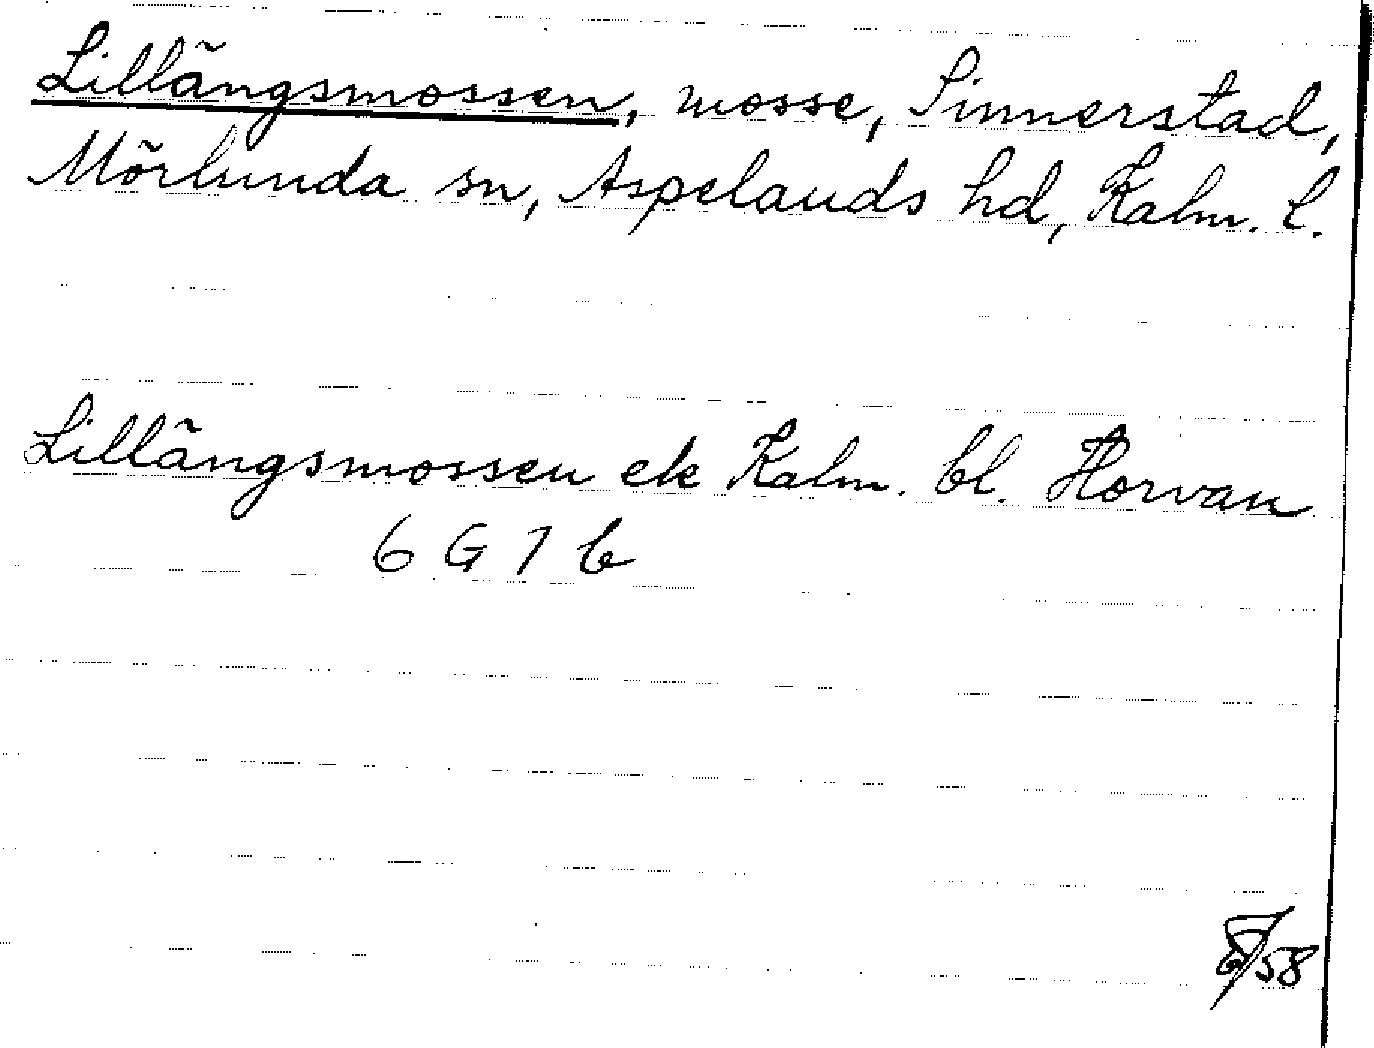 Lillängsmossen, mosse, Sinnerstad,
Mörlunda sn, Aspelands hd, Kalm. l.
Lillängsmossen ek Kalm. bl. Horvan
6 G 1 b
58